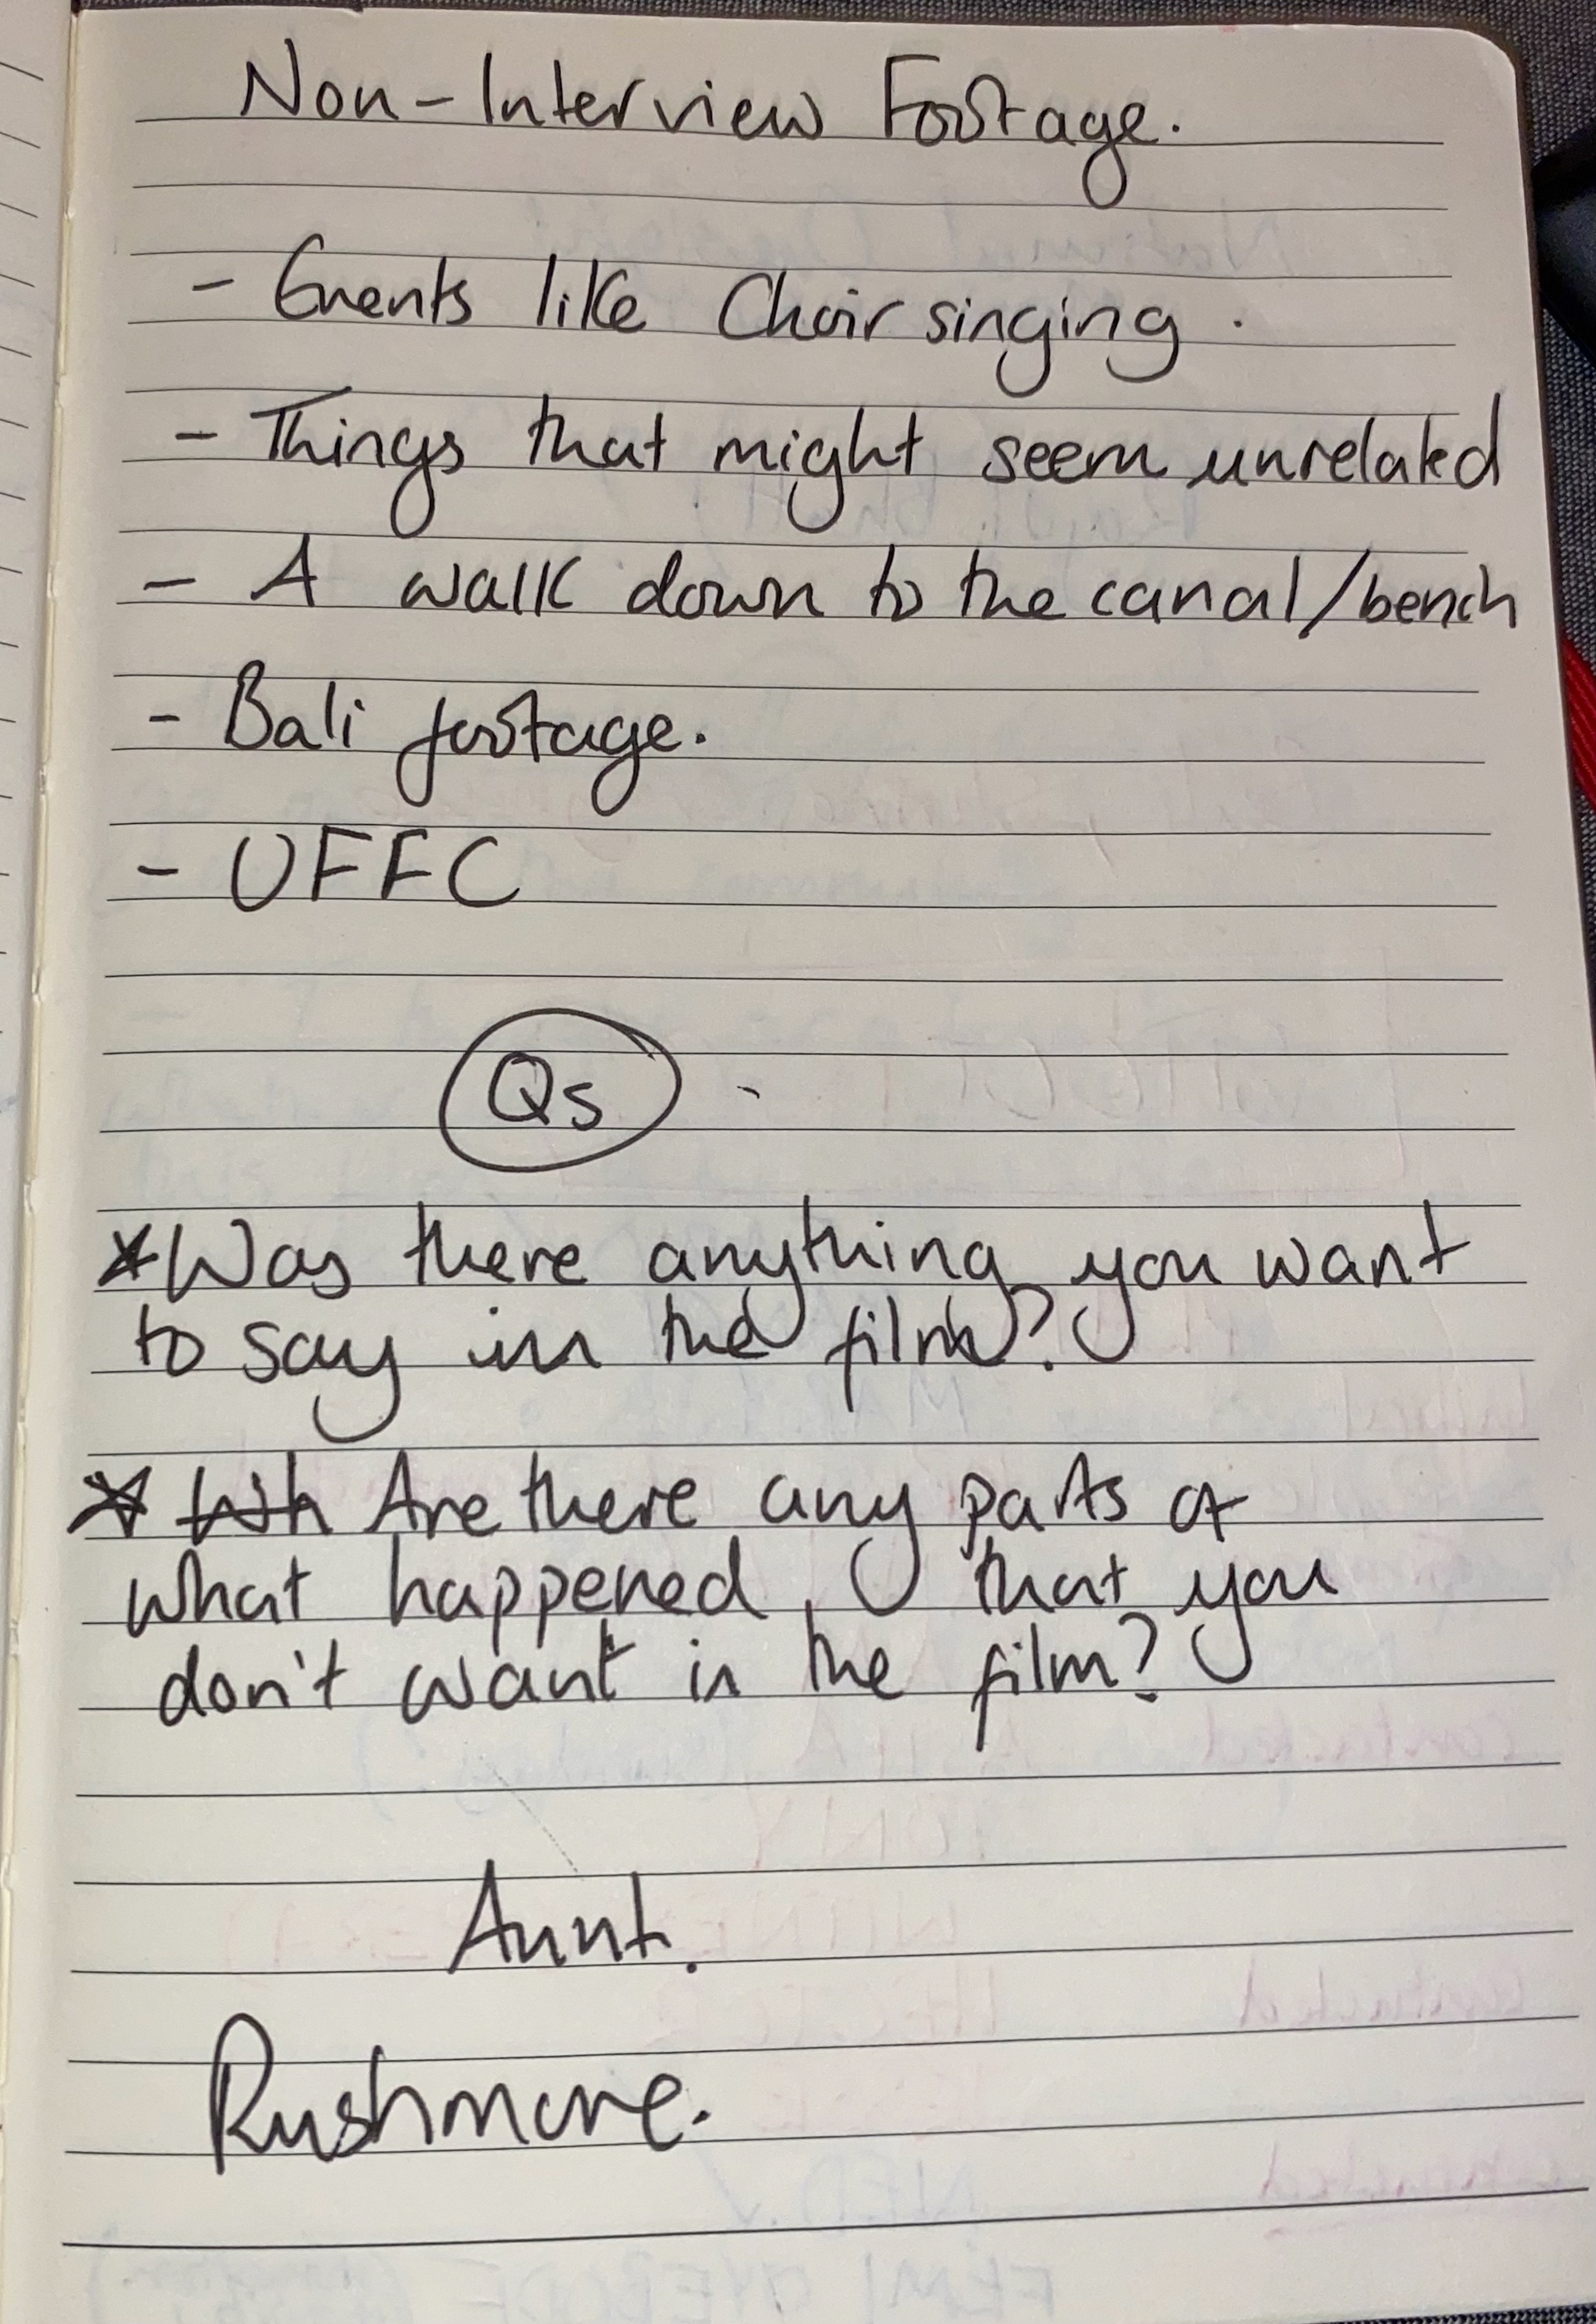 Non-Interview Footage.
- Events like Choir singing.
- Things that might seem unrelated
- A walk down to the canal/bench
- Bali footage.
- UFFC
Qs
*Was there anything you want
to say in the film?
* Wh Are there any parts of
what happened, that you
don't want in the film?
Aunt.
Rushmore.